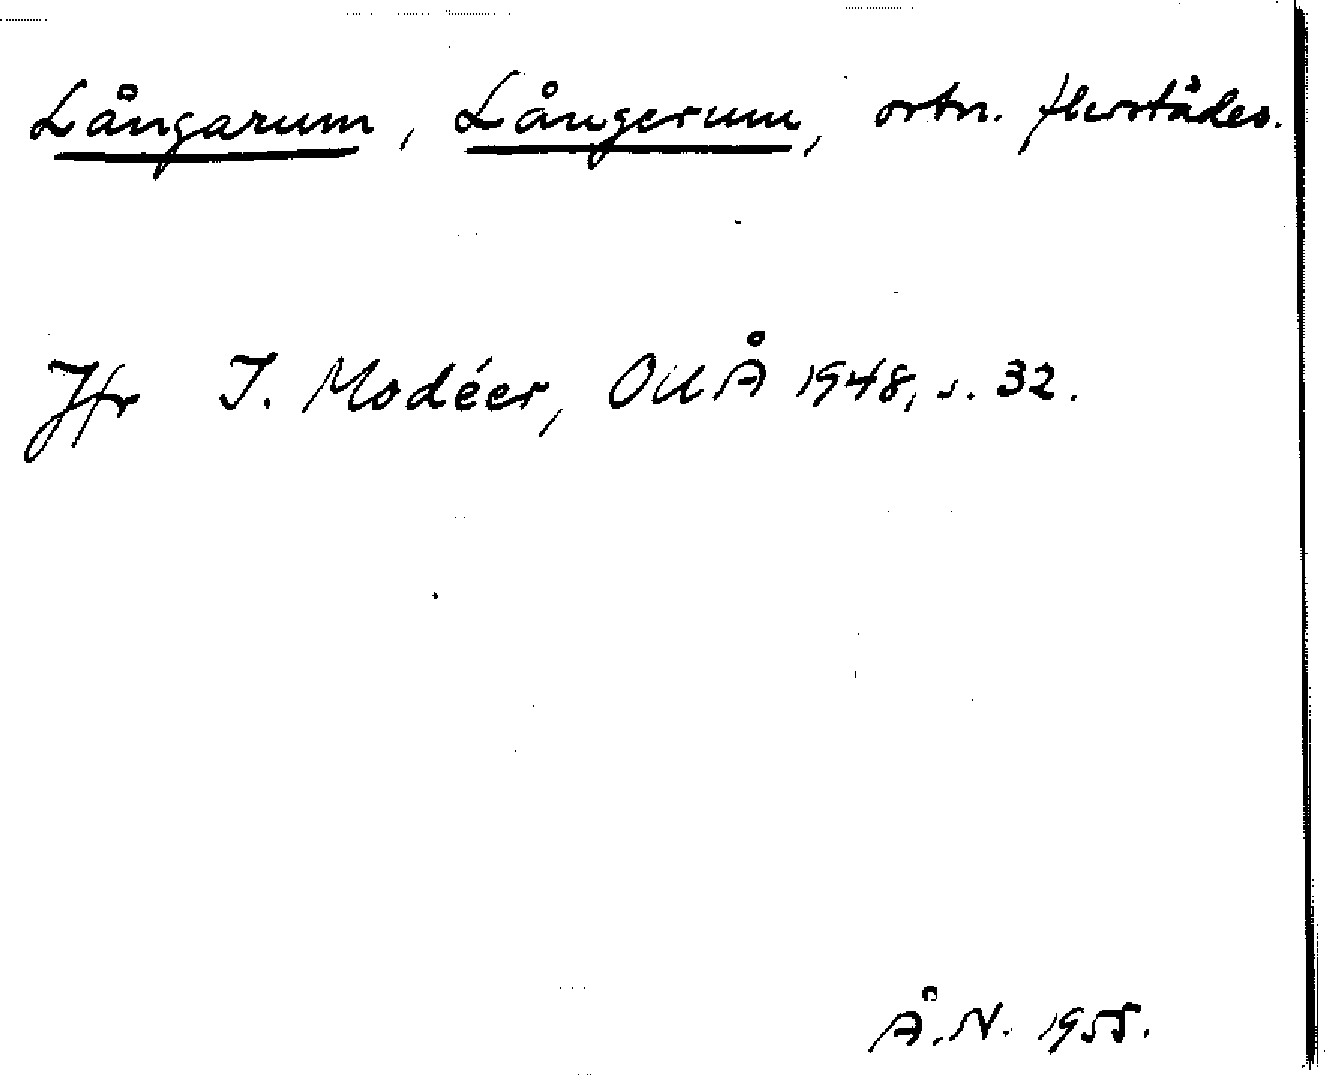 Långarum, Långerum, ortn. flerstädes.
Jfr I. Modéer, OUÅ 1948, s. 32.
Å.N. 1955.